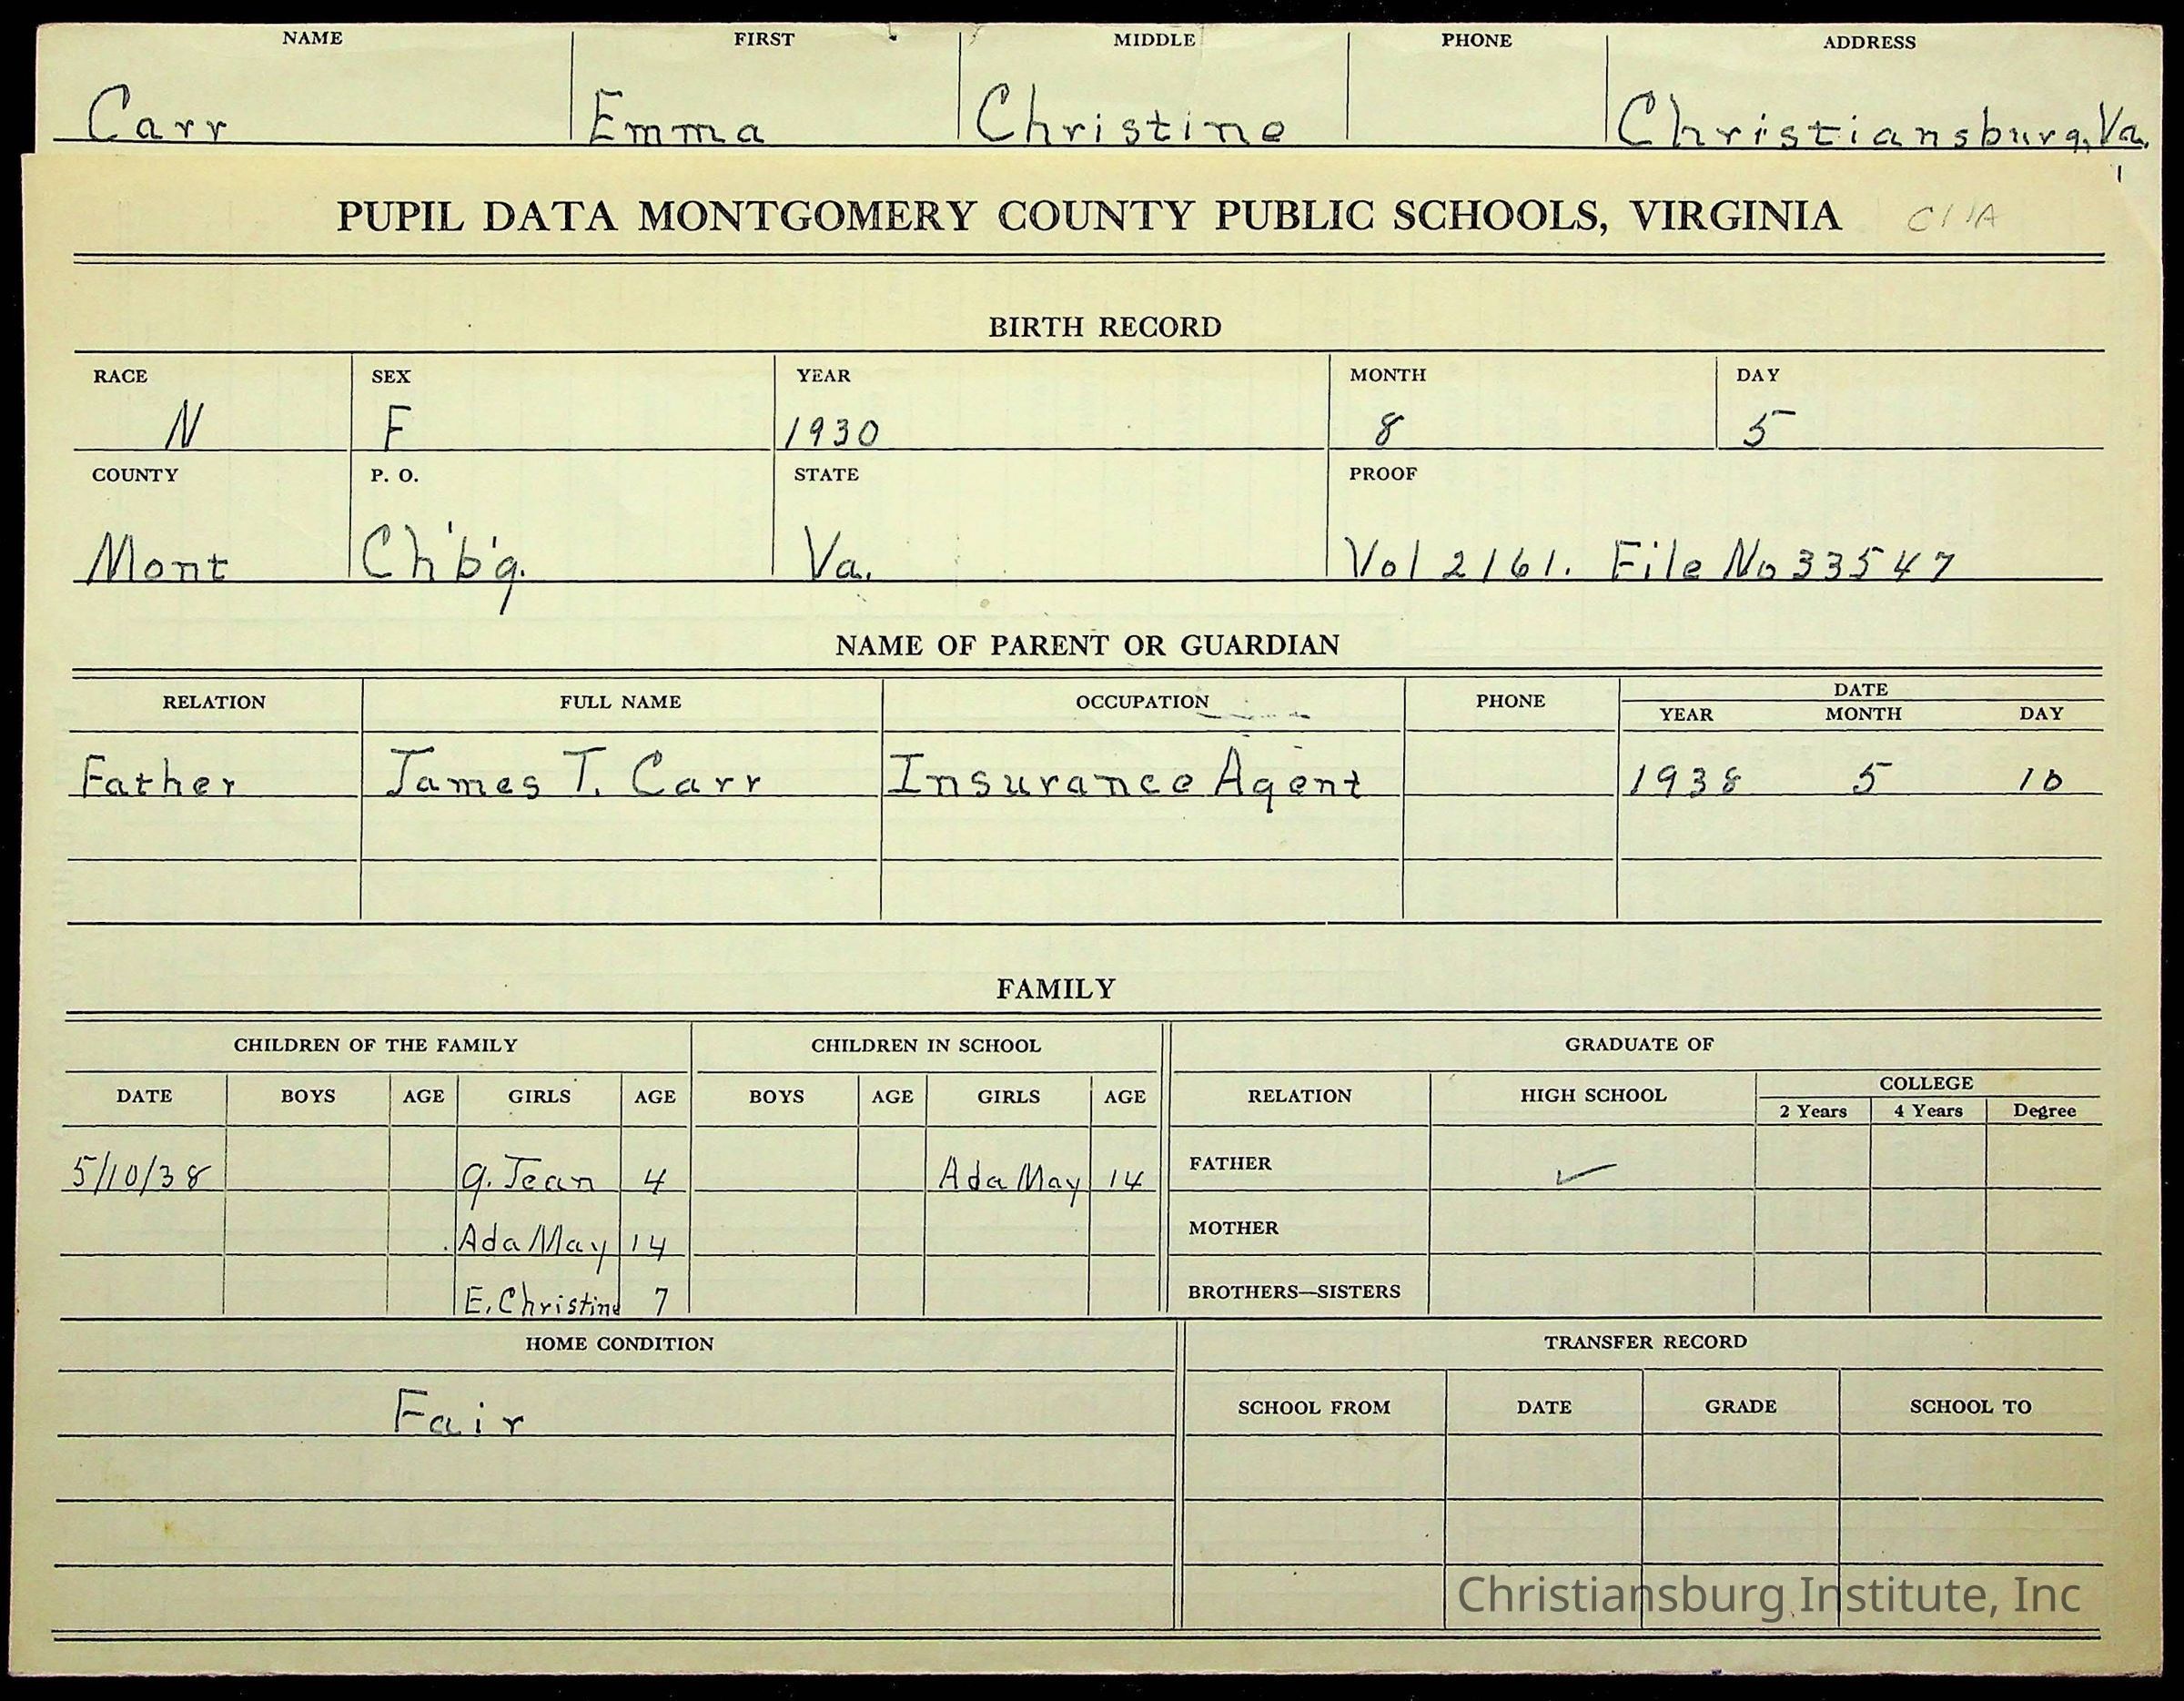 NAME FIRST MIDDLE PHONE ADDRESS
Carr Emma Christine Christiansburg, Va.
PUPIL DATA MONTGOMERY COUNTY PUBLIC SCHOOLS, VIRGINIA
BIRTH RECORD
RACE SEX YEAR MONTH DAY
N F 1930 8 5
COUNTY P. O. STATE PROOF
Mont Ch'b'g. Va. Vol 2161. File No 33547
NAME OF PARENT OR GUARDIAN
RELATION FULL NAME OCCUPATION PHONE DATE
YEAR MONTH DAY
Father James T. Carr Insurance Agent 1938 5 10
FAMILY
CHILDREN OF THE FAMILY CHILDREN IN SCHOOL GRADUATE OF
DATE BOYS AGE GIRLS AGE BOYS AGE GIRLS AGE RELATION HIGH SCHOOL COLLEGE
2 Years 4 Years Degree
5/10/38 G. Jean 4 Ada May 14 FATHER ✓
Ada May 14 MOTHER
E. Christine 7 BROTHERS—SISTERS
HOME CONDITION TRANSFER RECORD
Fair SCHOOL FROM DATE GRADE SCHOOL TO
Christiansburg Institute, Inc